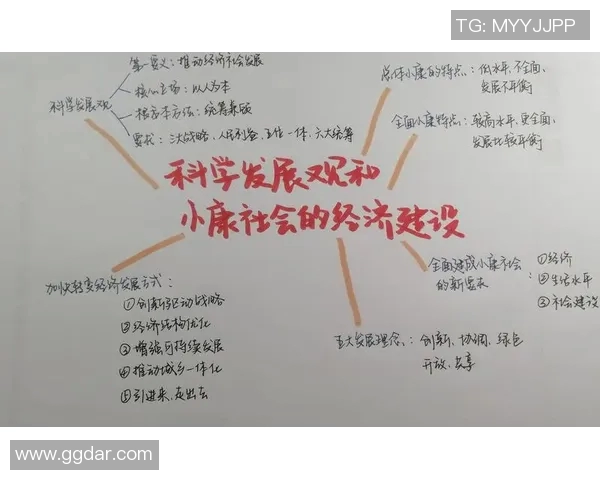 TG: MYYJJPP
第一要义：推动经济社会发展
科学发展观
核心立场：以人为本
根本方法：统筹兼顾
要求：三大战略、人民利益、五位一体、六大统筹
总体小康的特点：低水平、不全面、
发展不平衡
全面小康特点：较高水平、更全面、
发展比较平衡
科学发展观和
小康社会的经济建设
全面建成小康社会
的新要求
：①经济
②生活水平
③社会建设
加快转变经济发展方式：
①创新驱动战略
②经济结构优化
③增强可持续发展
④推动城乡一体化
⑤引进来，走出去
五大发展理念：创新、协调、绿色
开放、共享
www.ggdar.com